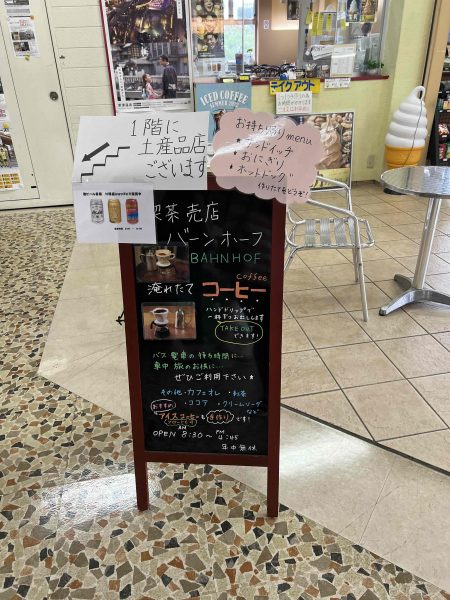 ICED COFFEE
SUMMER
テイクアウト
1階に
土産品店
ございます
お持ち帰りmenu
・サンドイッチ
・おにぎり
・ホットドッグ
作りたてをどうぞ!
喫茶売店
バーンホーフ
BAHNHOF
Coffee
淹れたて コーヒー
ハンドドリップで
一杯ずつお出しします
TAKE OUT
できます!
バス 電車の待ち時間に…
車中 旅のお供に…
ぜひご利用下さい★
その他・カフェオレ ・紅茶
・ココア ・クリームソーダ
など
おすすめ
アイスコーヒーも手作りです!
OPEN AM 8:30~PM 4:45
年中無休